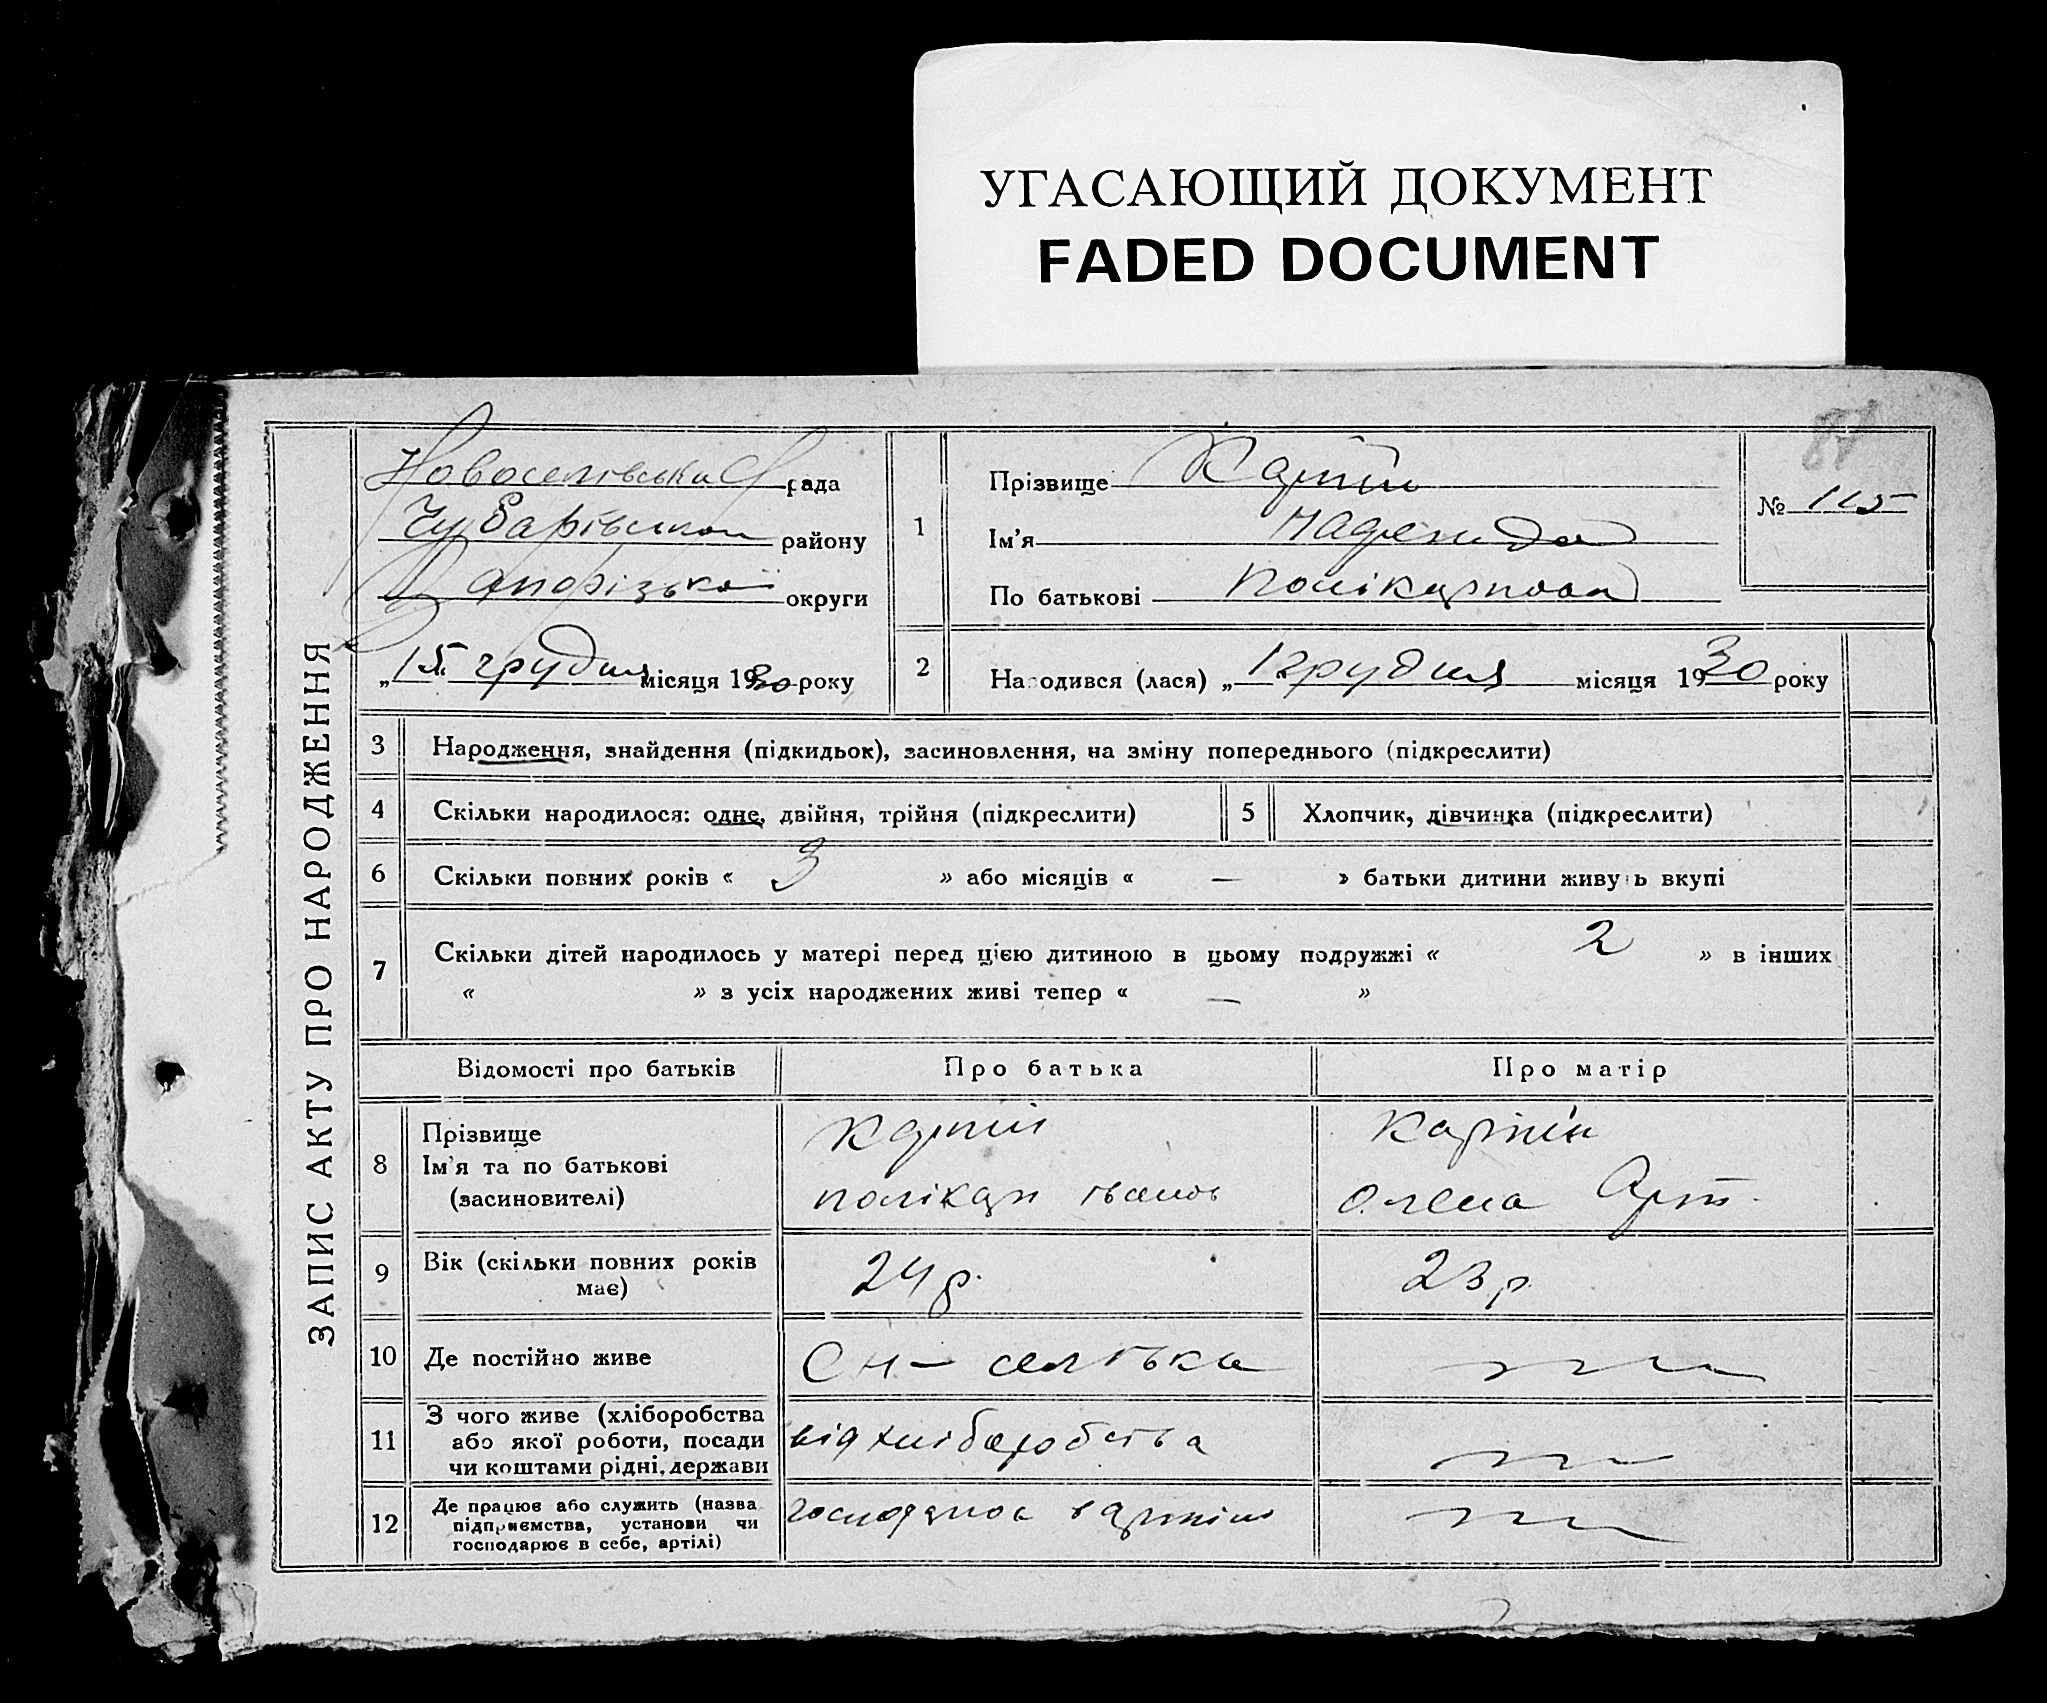 УГАСАЮЩИЙ ДОКУМЕНТ
FADED DOCUMENT
87
ЗАПИС АКТУ ПРО НАРОДЖЕННЯ
Новоселівська рада
Чубарівськой району
Запорізькой округи
„15“ грудня місяця 1930 року
1
Прізвище
Ім'я Надежда
По батькові Полікарповна
№ 115
2 Народився (лася) „1“ грудня місяця 1930 року
3 Народження, знайдення (підкидьок), засиновлення, на зміну попереднього (підкреслити)
4 Скільки народилося: одне, двійня, трійня (підкреслити)
5 Хлопчик, дівчинка (підкреслити)
6 Скільки повних років « 3 » або місяців « — » батьки дитини живуть вкупі
7 Скільки дітей народилось у матері перед цією дитиною в цьому подружжі « 2 » в інших
« » з усіх народжених живі тепер « — »
Відомості про батьків Про батька Про матір
8
Прізвище
Ім'я та по батькові
(засиновителі)
полікарп іванов
Олена Арт.
9
Вік (скільки повних років
має)
24 р. 23 р.
10 Де постійно живе
11
З чого живе (хліборобства
або якої роботи, посади
чи коштами рідні, держави
від хліборобства
12
Де працює або служить (назва
підприємства, установи чи
господарює в себе, артілі)
в артілі